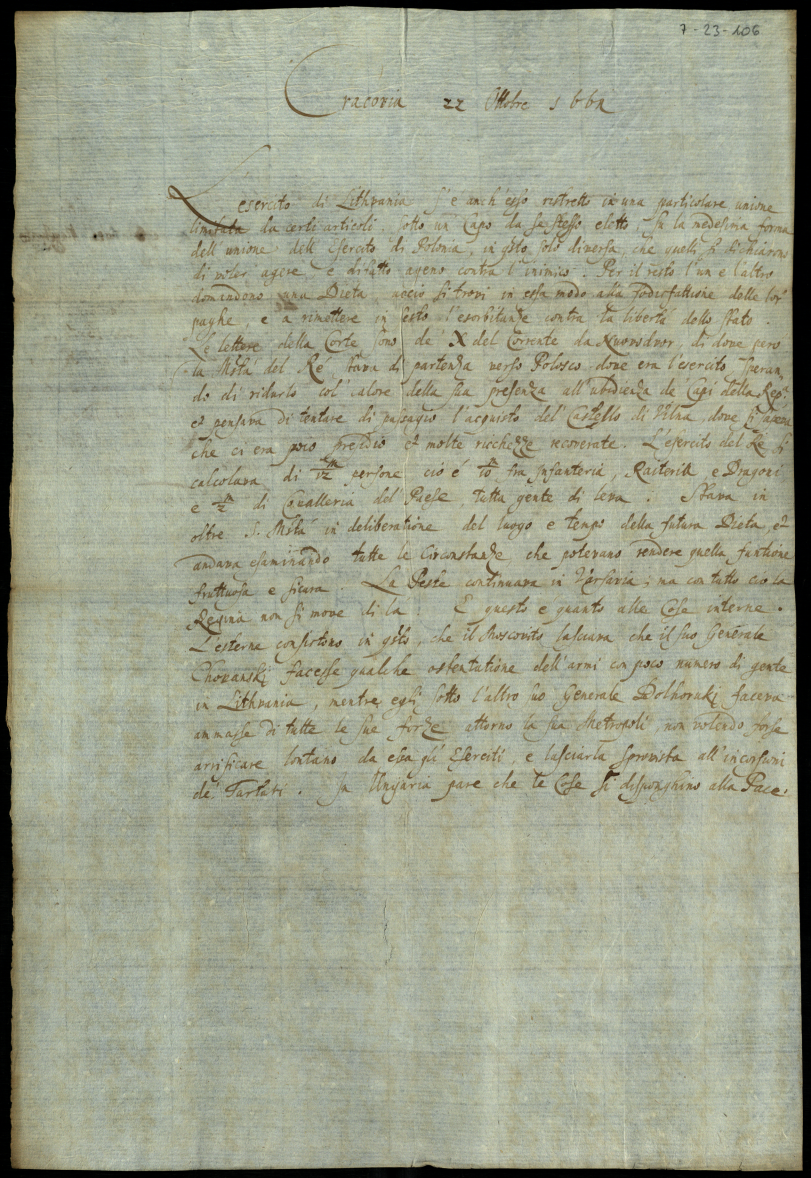 7-23-106
Cracovia 22 Ottobre 1661
L'esercito di Lithvania s'è anch'esso ristretto in una particolare unione
limitata da certi articoli, sotto un Capo da se stesso eletto, su la medesima forma
dell'unione dell'Esercito di Polonia, in q̃sto solo diversa, che quelli si dichiarono
di voler agere e di fatto ageno contra l'inimico. Per il resto l'un e l'altro
domandono una Dieta, acciò si trovi in essa modo alla sodisfattione delle lor
paghe, e a rimettere in sesto l'esorbitanze contra la libertà dello stato.
Le lettere della Corte sono de' X del Corrente da dvor, di dove però
la Mstà del Rè stava di partenza verso Polosco dove era l'esercito speran
do di ridurlo col calore della sua presenza all'ubidienza de' Capi della Rep.ca
et pensava di tentare di passagio l'acquisto del Castello di Vilna, dove si
che ci era poco presidio et molte ricchezze recoverate. L'esercito del Rè si
calcolava di 12m persone ciò é 10m fra Infanteria, Raiteria e Dragoni
e 2m di Cavalleria del Paese, tutta gente di leva. Stava in
oltre S. Mstà in deliberatione del luogo e tempo della futura Dieta, et
andava esaminando tutte le Circonstanze che potevano rendere quella funtione
fruttuosa e sicura. La Peste continuava in Varsavia; ma con tutto ciò la
Regina non si move di là. E questo e quanto alle Cose interne.
L'esterne consistono in q̃sto, che il Moscovito lasciava che il suo Generale
Chovanski facesse qualche ostentatione dell'armi con poco numero di gente
in Lithvania, mentre egli sotto l'altro suo Generale Dolhoruki faceva
ammasse di tutte le sue forze attorno la sua Metropoli, non volendo forse
arrificare lontano da essa gli Eserciti, e lasciarla sprovista all'incorsioni
de' Tartari. In Ungaria pare che le Cose si disponghino alla Pace.